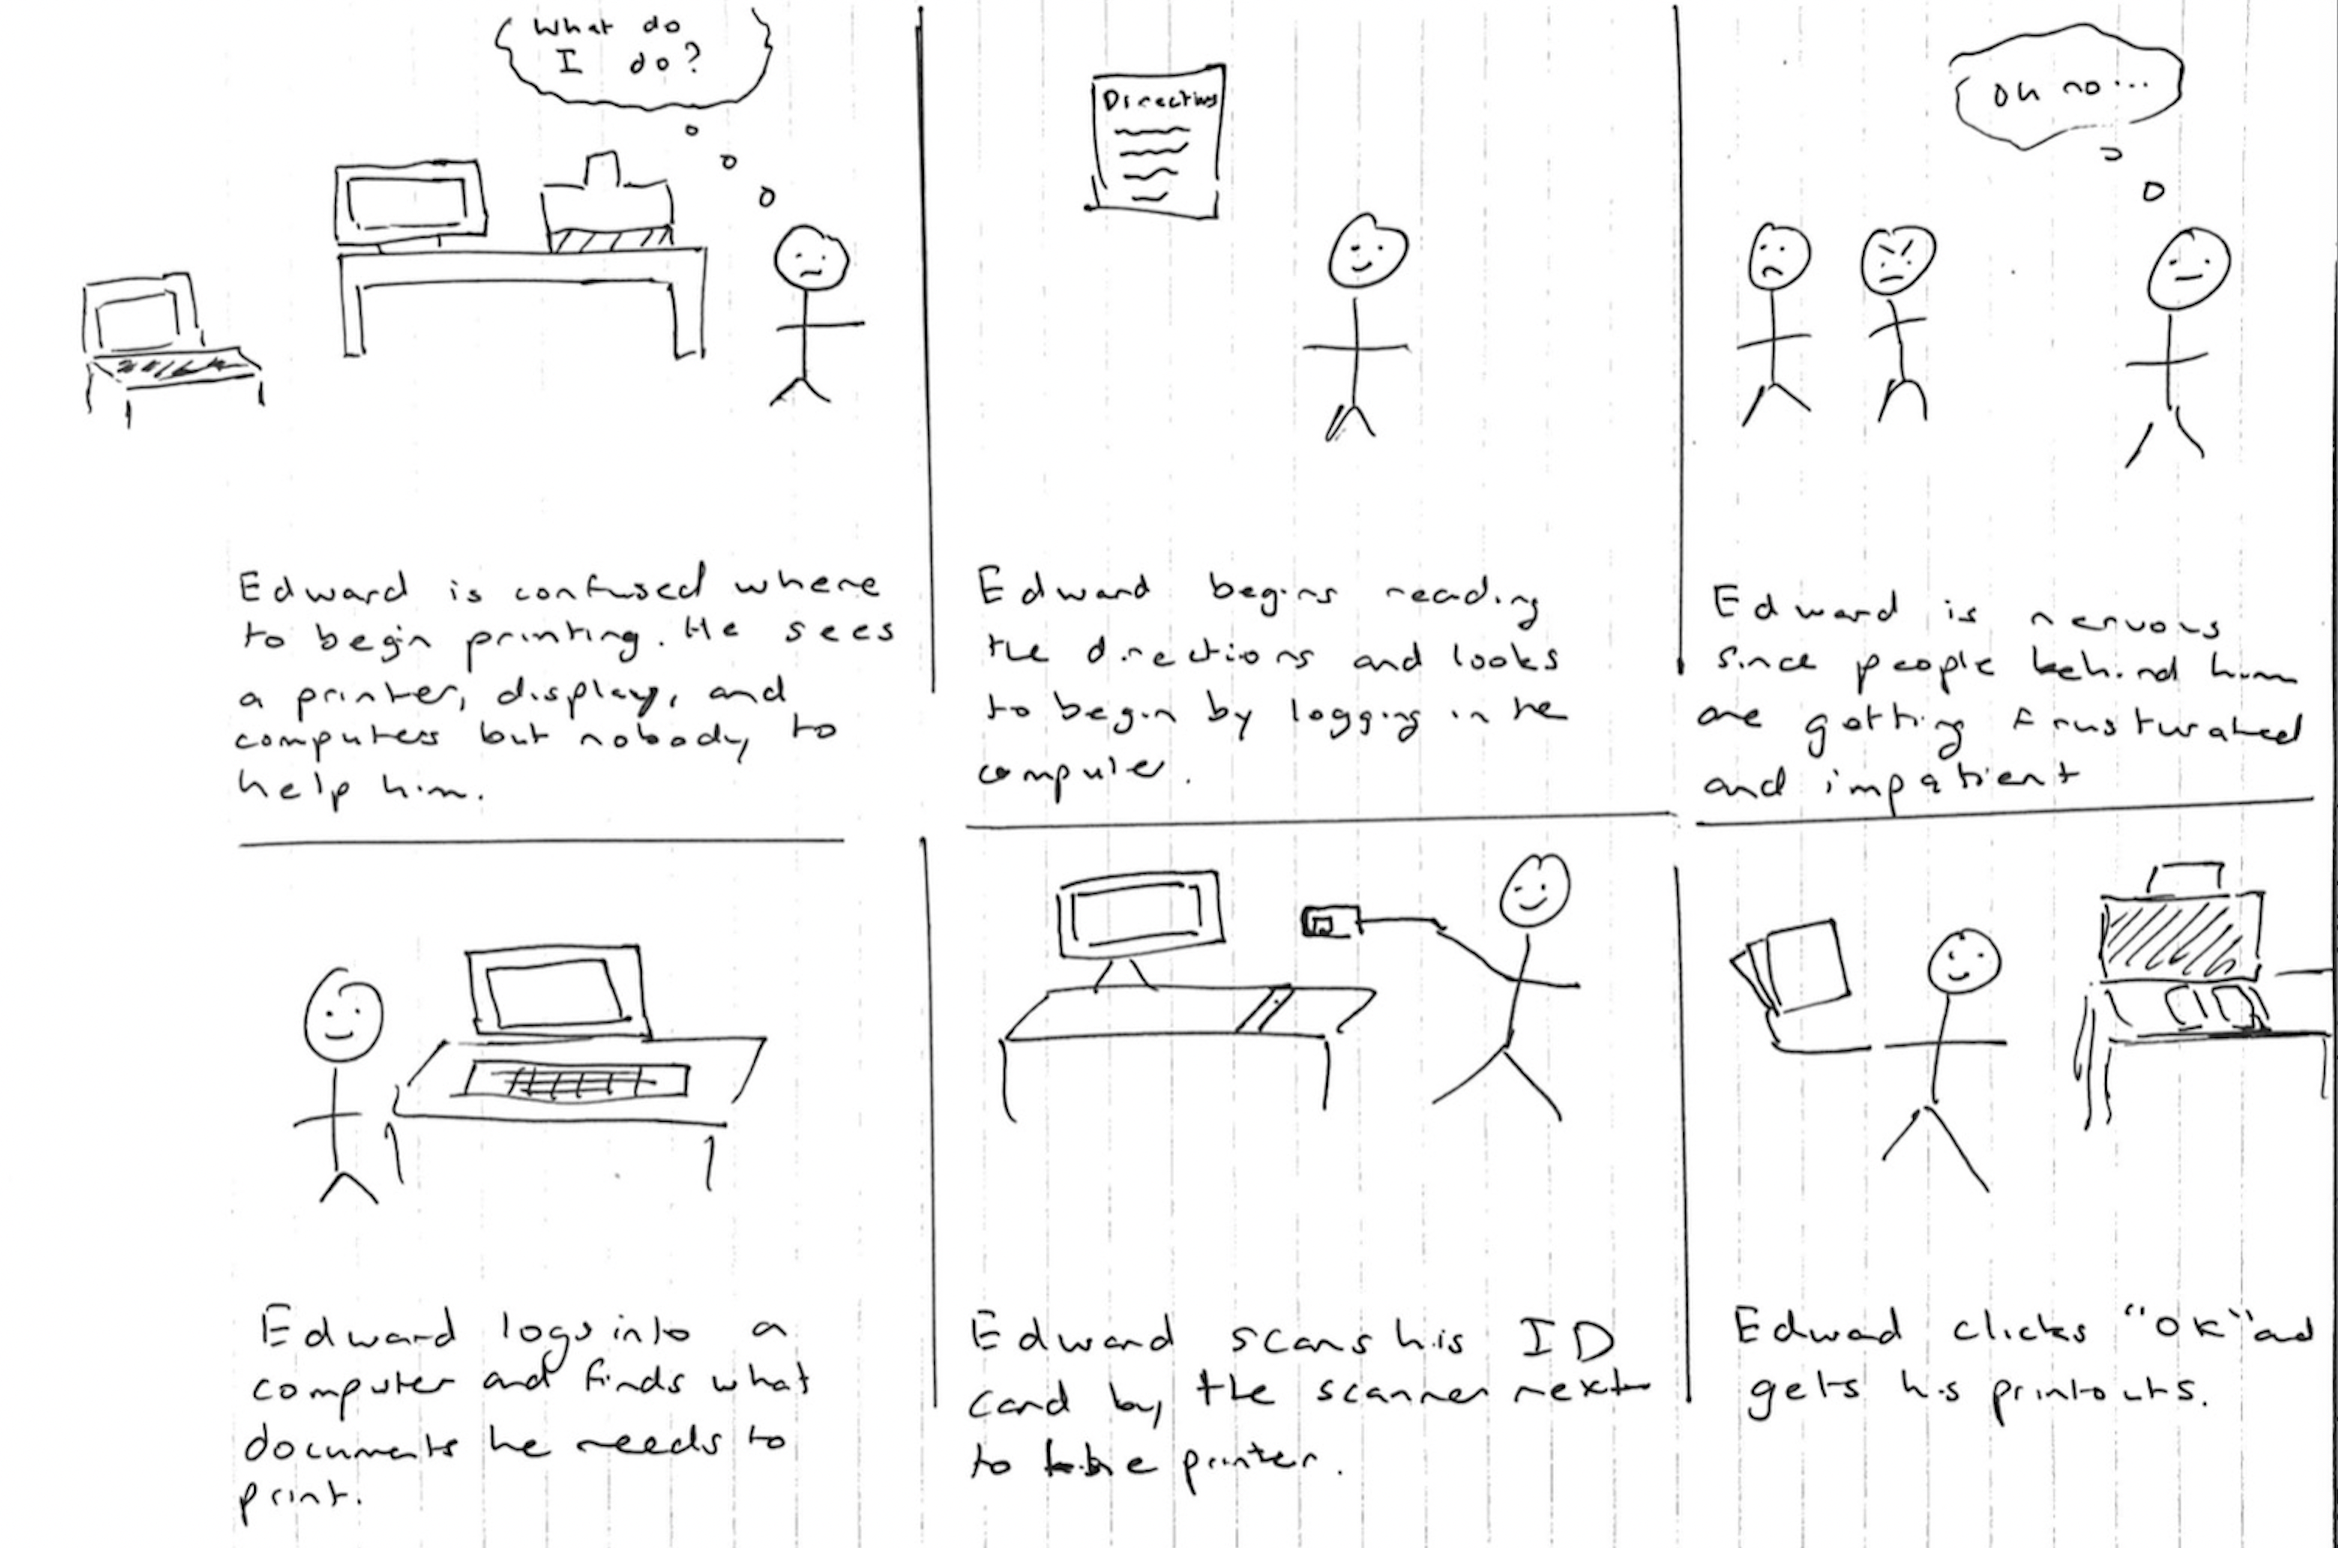 What do
I do?
Edward is confused where
to begin printing. He sees
a printer, display, and
computers but nobody to
help him.
Directions
Edward begins reading
the directions and looks
to begin by logging in the
computer.
Oh no...
Edward is nervous
since people behind him
are getting frusturated
and impatient
Edward logs into a
computer and finds what
documents he needs to
print.
Edward scans his ID
card by the scanner next
to the printer.
Edward clicks "OK" and
gets his printouts.